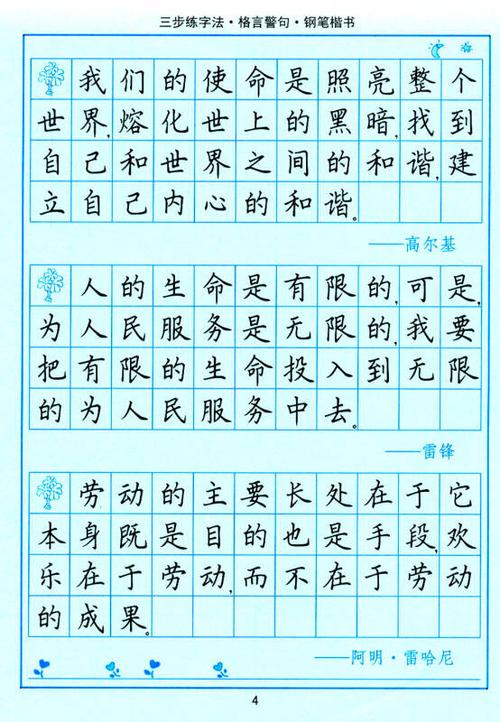 三步练字法·格言警句·钢笔楷书
我们的使命是照亮整个
世界,熔化世上的黑暗,找到
自己和世界之间的和谐,建
立自己内心的和谐。
——高尔基
人的生命是有限的,可是,
为人民服务是无限的,我要
把有限的生命投入到无限
的为人民服务中去。
——雷锋
劳动的主要长处在于它
本身既是目的也是手段,欢
乐在于劳动,而不在于劳动
的成果。
——阿明·雷哈尼
4